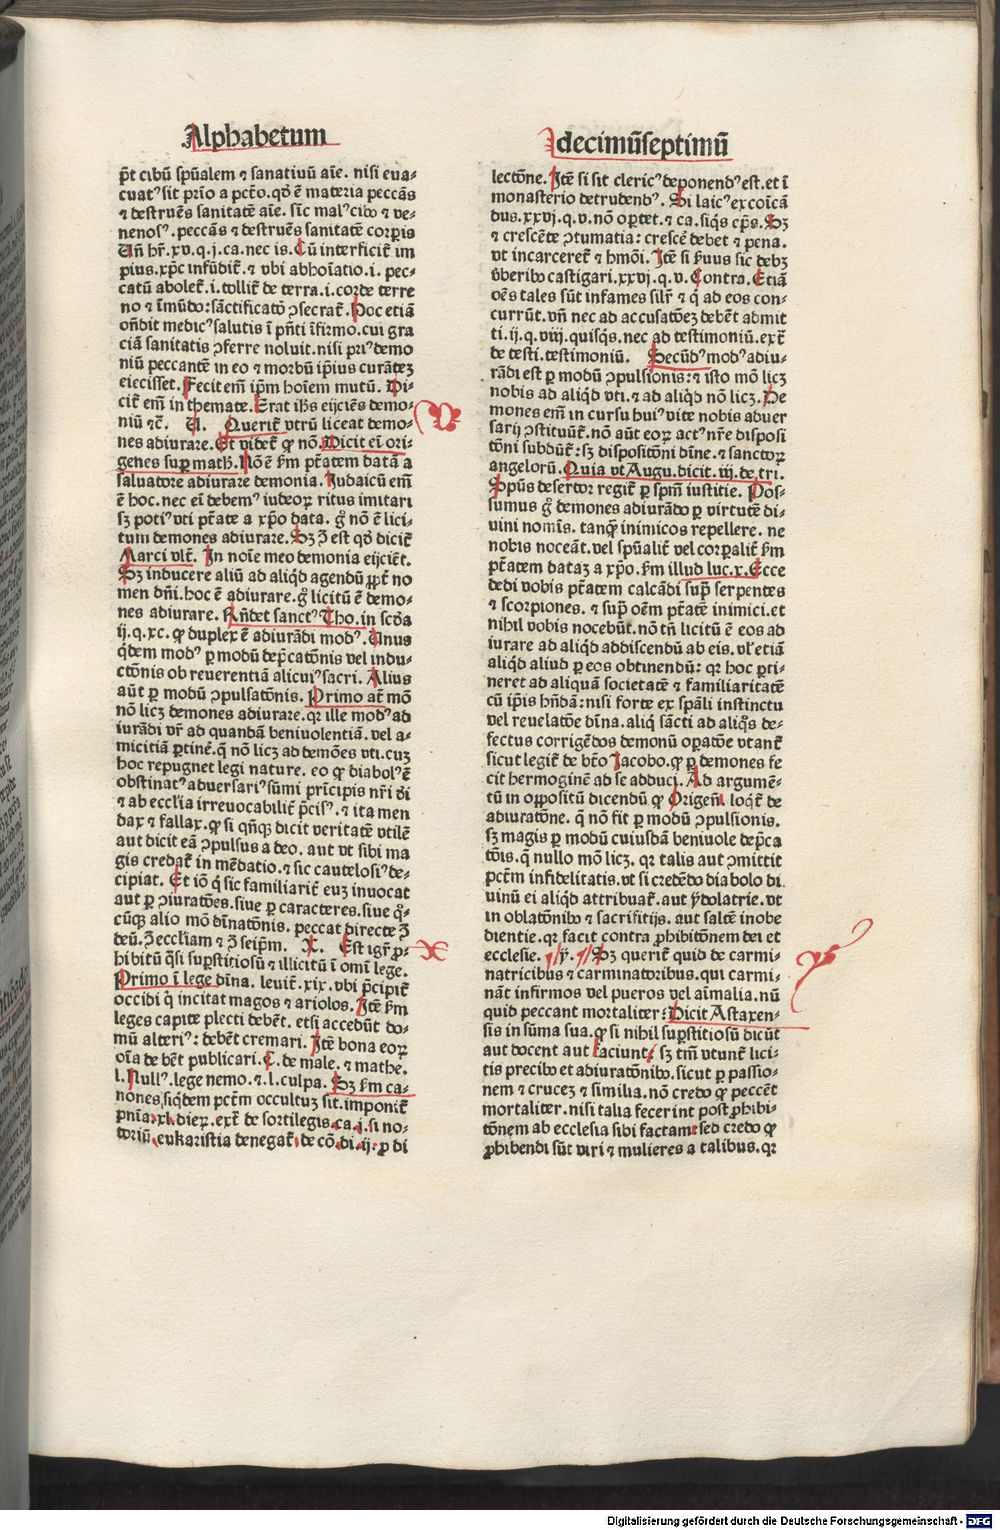 Alphabetum
pn̄t cibū spūalem ⁊ sanatiuū aīe. nisi eua⸗
cuatꝰ sit prīo a pctō. qd̓ ē materia peccās
⁊ destruēs sanitatē aīe. sīc malꝰ cibꝰ ⁊ ve⸗
nenosꝰ. peccās ⁊ destruēs sanitatē corpis
Vn̄ hr̄. xv. q. j. ca. nec is. Cū interficit̄ im
pius. xp̄c infūdit̄. ⁊ vbi abhoīatio. i. pec⸗
catū abolet̄. i. tollit̄ de terra. i. corde terre
no ⁊ īmūdo: sāctificatō ↄsecrat̄. Hoc etiā
on̄dit medicꝰ salutis ī pn̄ti īfirmo. cui gra
ciā sanitatis ↄferre noluit. nisi priꝰ demo
niū peccantē in eo ⁊ morbū ip̄ius curātez
eiecisset. Fecit em̄ ip̄m hoīem mutū. Di⸗
cit̄ em̄ in themate. Erat ih̄s eijciēs demo⸗
niū ⁊c̄. V. Querit̄ vtrū liceat demo⸗
nes adiurare. Et videt̄ ꝙ nō. Dicit ei̅ ori⸗
genes suꝑ math̓. Nō ē fm̄ ptātem datā a
saluatore adiurare demonia. Judaicū em̄
ē hoc. nec ei̅ debemꝰ iudeoꝝ ritus imitari
sꝫ potiꝰ vti ptāte a xp̄o data. gͦ nō ē lici⸗
tum demones adiurare. Sꝫ ℥ est qd̓ dicit̄
Marci vlt̄. In noīe meo demonia eijciēt.
Sꝫ inducere aliū ad aliqd̓ agendū ꝓpt̄ no
men dn̄i. hoc ē adiurare. gͦ licitū ē demo⸗
nes adiurare. Rn̄det sanctꝰ Tho. in scd̓a
ij. q. xc. ꝙ duplex ē adiurādi modꝰ. Unus
qͥdem modꝰ ꝑ modū dep̄catōnis vel indu⸗
ctōnis ob reuerentiā alicuiꝰ sacri. Alius
aūt ꝑ modū ↄpulsatōnis. Primo at̄ mō
nō licꝫ demones adiurare. qꝛ ille modꝰ ad
iurādi vr̄ ad quandā beniuolentiā. vel a⸗
micitiā ꝑtinē. q̄ nō licꝫ ad demōes vti. cuꝫ
hoc repugnet legi nature. eo ꝙ diabolꝰ ē
obstinatꝰ aduersariꝰ sūmi prīcipis nr̄i d̓i
⁊ ab ecclīa irreuocabilit̄ p̄cisꝰ. ⁊ ita men
dax ⁊ fallax. ꝙ si qn̄qꝫ dicit veritatē vtilē
aut dicit eā ↄpulsus a deo. aut vt sibi ma
gis credat̄ in mēdatio. ⁊ sic cautelosiꝰ de⸗
cipiat. Et iō q̄ sic familiarit̄ euꝫ inuocat
aut ꝑ ↄiuratōes. siue ꝑ caracteres. siue qͦ⸗
cūqꝫ alio mō dīnatōnis. peccat directe ℥
deū. ℥ eccl̄iam ⁊ ℥ seip̄m. X. Est igr̄ ꝓ⸗
hibitū qͣsi suꝑstitiosū ⁊ illicitū ī omī lege.
Primo ī lege dīna. leuit̄. xix. vbi p̄cipit̄
occidi qͥ incitat magos ⁊ ariolos. Itē fm̄
leges capite plecti debēt. etsi accedūt do⸗
mū alteriꝰ: debēt cremari. Itē bona eoꝝ
oīa de bēt publicari. C. de male. ⁊ mathe.
l. Nullꝰ. lege nemo. ⁊. l. culpa. Sꝫ fm̄ ca⸗
nones, siqͥdem pctm̄ occultuꝫ sit. imponit̄
pnīa. xl. dieꝝ. ext̄ de sortilegis. ca. j. si no⸗
toriū. eukaristia denegat̄. de cō. di. ij. ꝓ di
decimūseptimū
lectōne. Itē si sit clericꝰ deponendꝰ est. et ī
monasterio detrudendꝰ. Si laicꝰ excoīcā
dus. xxvj. q. v. nō oꝑtet. ⁊ ca. siqͥs ep̄s. Sꝫ
⁊ crescēte ↄtumatia: crescē debet ⁊ pena.
vt incarceret̄ ⁊ hmōi. Itē si ẜuus sic debꝫ
v̓beribꝰ castigari. xxvj. q. v. Contra. Etiā
oēs tales sūt infames silr̄ ⁊ q̄ ad eos con⸗
currūt. vn̄ nec ad accusatōeꝫ debēt admit
ti. ij. q. viij. quisqͥs. nec ad testimoniū. ext̄
de testi. testimoniū. Secūdꝰ modꝰ adiu⸗
rādi est ꝑ modū ↄpulsionis: ⁊ isto mō licꝫ
nobis ad aliqd̓ vti. ⁊ ad aliqd̓ nō licꝫ. De
mones em̄ in cursu huiꝰ vite nobis aduer
sarij ↄstituūt̄. nō aūt eoꝝ actꝰ nr̄e disposi
tōni subdūt̄: sꝫ dispositōni dīne. ⁊ sanctoꝝ
angeloꝝ. Quia vt Augu. dicit. iij. de tri.
Spūs desertor regit̄ ꝑ spm̄ iustitie. Pos⸗
sumus gͦ demones adiurādo ꝑ virtutē di⸗
uini nomīs. tanqͣ inimicos repellere. ne
nobis noceāt. vel spūalit̄ vel corꝑalit̄ fm̄
ptātem dataꝫ a xp̄o. fm̄ illud luc. x. Ecce
dedi vobis ptātem calcādi suꝑ serpentes
⁊ scorpiones. ⁊ suꝑ oēm ptātē inimici. et
nihil vobis nocebūt. nō tn̄ licitū ē eos ad
iurare ad aliqd̓ addiscendū ab eis. vl̓ etiā
aliqd̓ aliud ꝑ eos obtinendū: qꝛ hoc ꝑti⸗
neret ad aliquā societatē ⁊ familiaritatē
cū ip̄is hn̄dā: nisi forte ex sp̄ali instinctu
vel reuelatōe dīna. aliqͥ sācti ad aliqͦs de⸗
fectus corrigēdos demonū oꝑatōe vtant̄
sicut legit̄ de btō Jacobo. ꝙ ꝑ demones fe
cit hermoginē ad se adduci. Ad argumē⸗
tū in oppositū dicendū ꝙ Origeñ. loqͥt̄ de
adiuratōne. q̄ nō fit ꝑ modū ↄpulsionis.
sꝫ magis ꝑ modū cuiusdā beniuole dep̄ca
tōis. q̄ nullo mō licꝫ. qꝛ talis aut ↄmittit
pctm̄ infidelitatis. vt si credēdo diabolo di
uinū ei aliqd̓ attribuat̄. aut ydolatrie. vt
in oblatōnibꝰ ⁊ sacrifitijs. aut saltē inobe
dientie. qꝛ facit contra ꝓhibitōnem dei et
ecclesie. y. Sꝫ querit̄ quid de carmi⸗
natricibus ⁊ carminatoribus. qui carmi⸗
nāt infirmos vel pueros vel aīmalia. nū
quid peccant mortaliter: Dicit Astaxen⸗
sis in sūma sua. ꝙ si nihil suꝑstitiosū dicūt
aut docent aut faciunt. sꝫ tm̄ vtunt̄ lici⸗
tis precibꝰ et adiuratōnibꝰ. sicut ꝑ passio⸗
nem ⁊ cruceꝫ ⁊ similia. nō credo ꝙ peccēt
mortaliter. nisi talia fecerint post ꝓhibi⸗
tōnem ab ecclesia sibi factam. sed credo ꝙ
ꝓhibendi sūt viri ⁊ mulieres a talibus. qꝛ
V
X
y
Digitalisierung gefördert durch die Deutsche Forschungsgemeinschaft - DFG